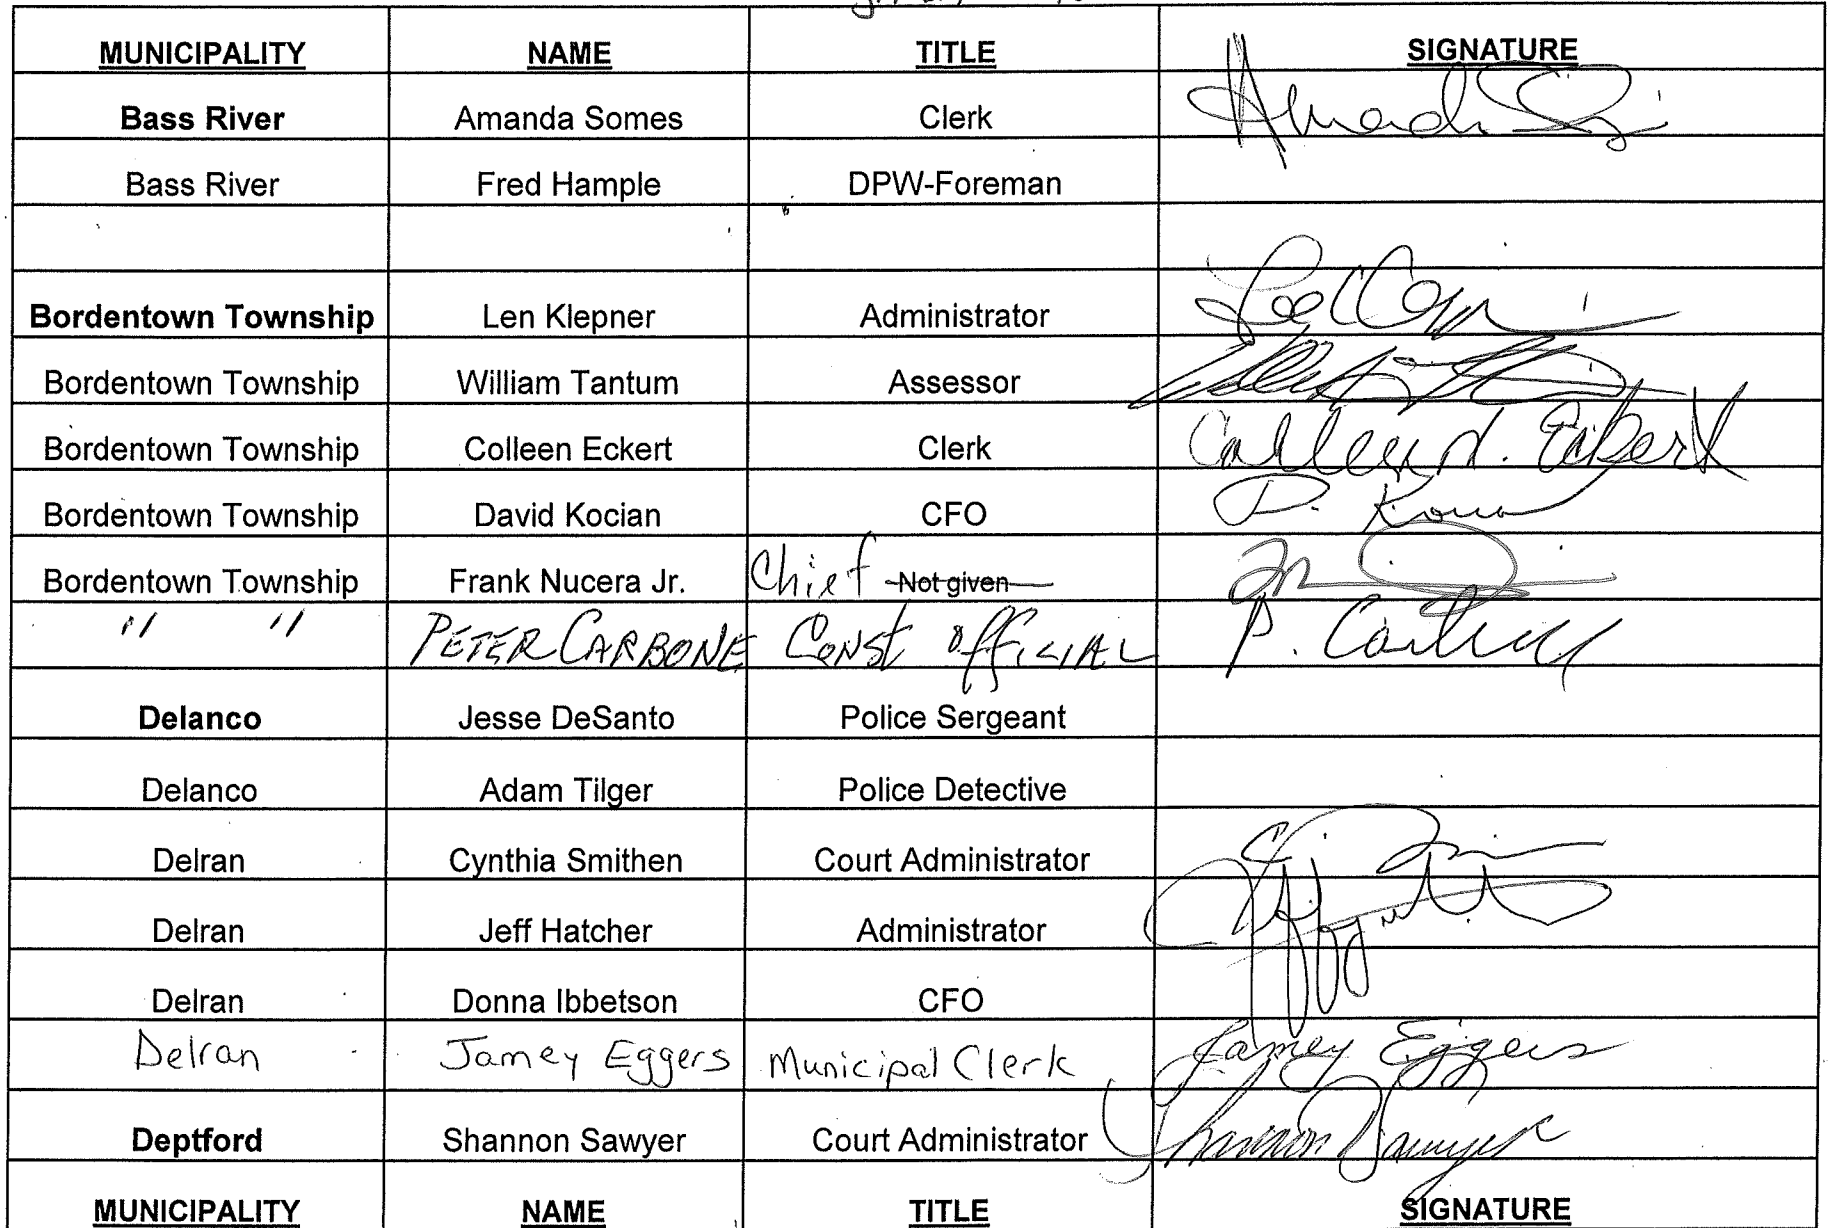 MUNICIPALITY NAME TITLE SIGNATURE
Bass River Amanda Somes Clerk
Bass River Fred Hample DPW-Foreman
Bordentown Township Len Klepner Administrator
Bordentown Township William Tantum Assessor
Bordentown Township Colleen Eckert Clerk Colleen L. Eckert
Bordentown Township David Kocian CFO D. Kocian
Bordentown Township Frank Nucera Jr. Chief Not given
" " PETER CARBONE CONST OFFICIAL P. Carbone
Delanco Jesse DeSanto Police Sergeant
Delanco Adam Tilger Police Detective
Delran Cynthia Smithen Court Administrator
Delran Jeff Hatcher Administrator
Delran Donna Ibbetson CFO
Delran Jamey Eggers Municipal Clerk Jamey Eggers
Deptford Shannon Sawyer Court Administrator Shannon Sawyer
MUNICIPALITY NAME TITLE SIGNATURE